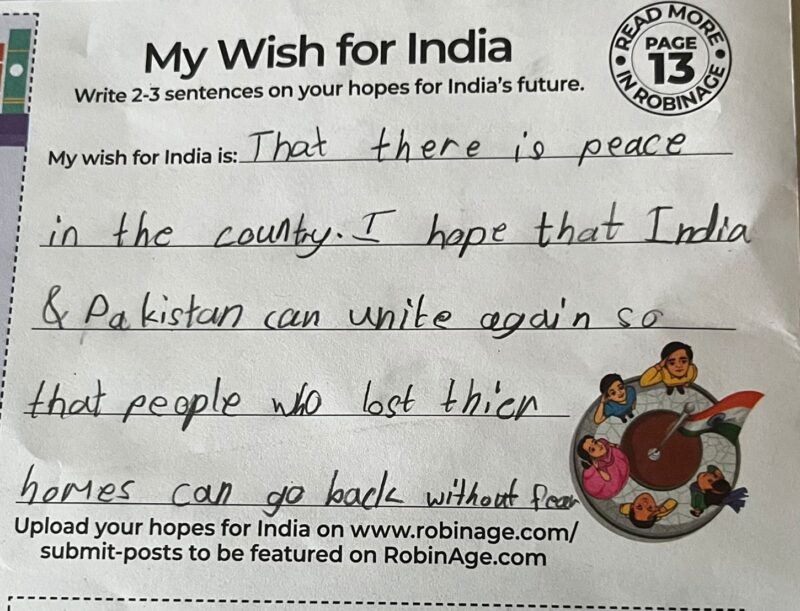 My Wish for India
Write 2-3 sentences on your hopes for India's future.
READ MORE
PAGE
13
IN ROBINAGE
My wish for India is: That there is peace
in the country. I hope that India
& Pakistan can unite again so
that people who lost thier
homes can go back without fear
Upload your hopes for India on www.robinage.com/
submit-posts to be featured on RobinAge.com